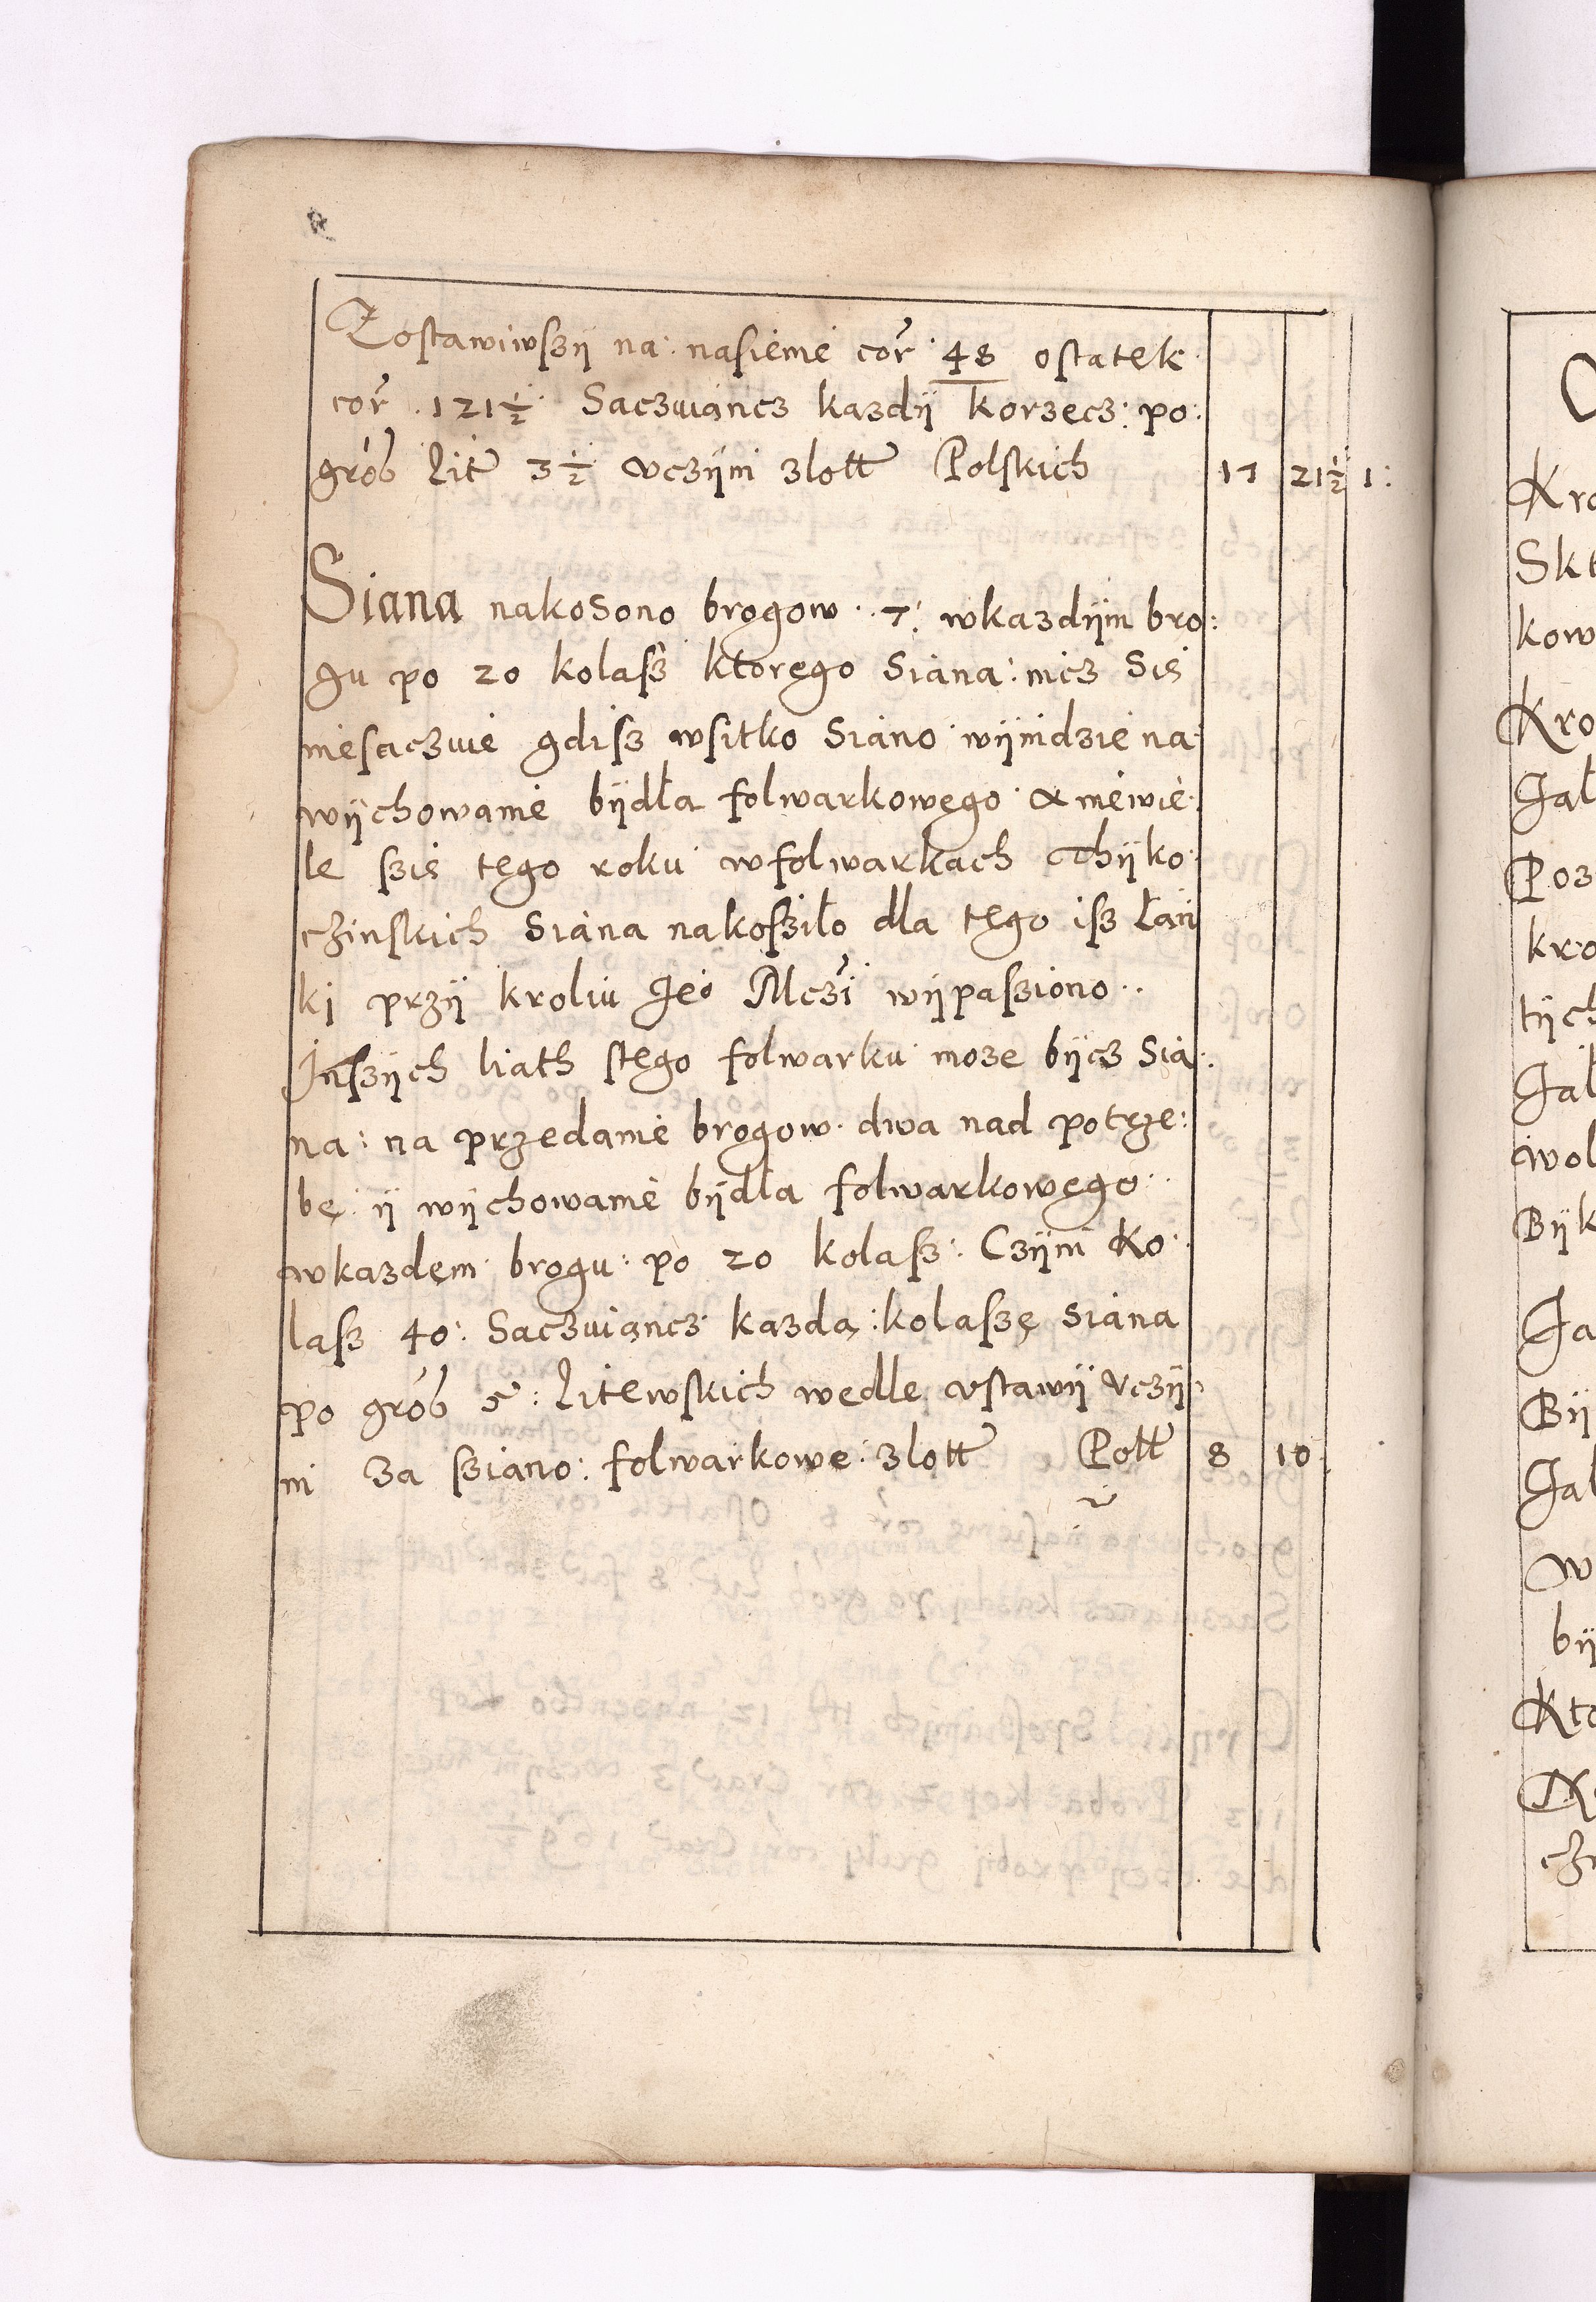 Zostawiwszÿ na nasienie cor 48 ostatek
cor 121½ Saczuiancz kazdÿ korzecz: po:
grob Lit 3½ vczÿni złott Polskich 17 21½ 1:
Siana nakosono brogow 7: wkazdÿm bro:
gu po 20 kolasz ktorego Siana: nicz Sie
niesaczuie gdisz wsitko Siano wÿnidzie na
wÿchowanie bÿdła folwarkowego A niewie
le szie tego roku wfolwarkach Thÿko
czinskich Siana nakosziło dla tego isz Łan
ki przÿ kroliu Jeo Mczi wÿpasziono
Jnszÿch liath stego folwarku moze bÿcz Sia:
na: na przedanie brogow dwa nad potrze:
bę ÿ wÿchowanie bÿdła folwarkowego
wkazdem brogu: po 20 kolasz: Czÿni Ko
lasz 40: Saczuiancz kazda: kolaszę Siana
po grob 5: Litewskich wedle vstawÿ vczÿ
ni za sziano: folwarkowe: złott Poltt 8 10
Kro
Skt
kow
Kro
Jał
Poz
kro
tÿch
Jał
wol
Bÿk
Ja
Bÿ
Jał
w
bÿ
Kto